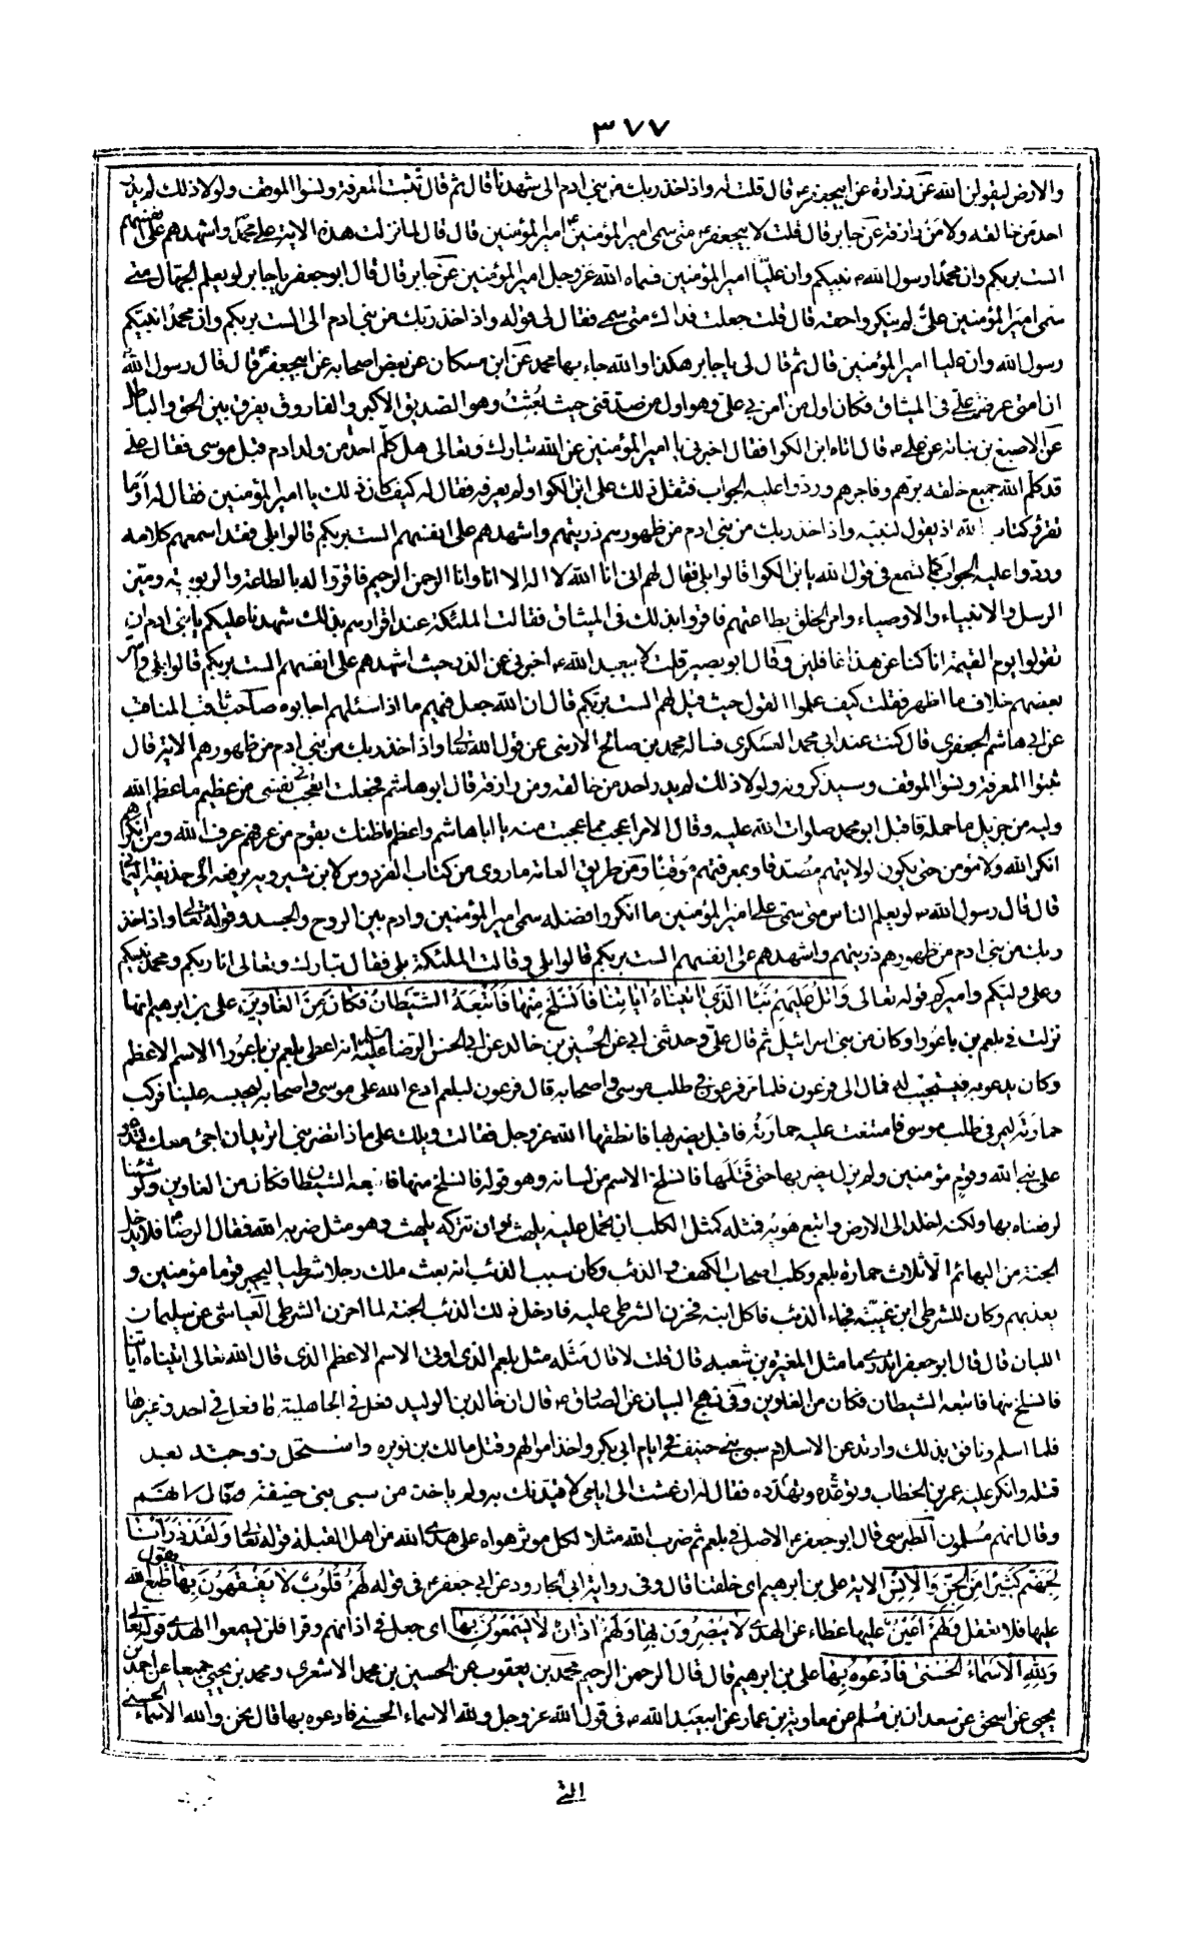 ٣٧٧
والارض ليقولن الله عن زرارة عن ابيجعفر ع قال قلت له واذ اخذ ربك من بني ادم الى شهدنا قال ثم قال ثبتت المعرفة ونسوا الموقف ولولا ذلك لم يدر
احد من خالقه ولا من رازقه عن جابر قال قلت لابيجعفر ع متى سمى امير المؤمنين ع امير المؤمنين قال قال لما نزلت هذه الاية على محمد واشهدهم على انفسهم
الست بربكم وان محمدا رسول الله ص نبيكم وان عليا امير المؤمنين فسماه الله عز وجل امير المؤمنين عن جابر قال قال ابو جعفر يا جابر لو يعلم الجهال متى
سمى امير المؤمنين علي لم ينكروا حقه قال قلت جعلت فداك متى سمى فقال لى قوله واذ اخذ ربك من بني ادم الى الست بربكم وان محمدا نبيكم
رسول الله وان عليا امير المؤمنين قال ثم قال لى يا جابر هكذا والله جاء بها محمد عن ابن مسكان عن بعض اصحابه عن ابيجعفر ع قال قال رسول الله
ان امتى عرضت على في الميثاق فكان اول من امن بي على وهو اول من صدقني حيث بعثت وهو الصديق الاكبر والفاروق يفرق بين الحق والباطل
عن الاصبغ بن نباتة عن على ع قال اتاه ابن الكوا فقال اخبرني يا امير المؤمنين عن الله تبارك وتعالى هل كلم احد من ولد ادم قبل موسى فقال على
قد كلم الله جميع خلقه برهم وفاجرهم وردوا عليه الجواب فثقل ذلك على ابن الكوا ولم يعرفه فقال له كيف كان ذلك يا امير المؤمنين فقال له أوما
تقرء كتاب الله اذ يقول لنبيه واذ اخذ ربك من بني ادم من ظهورهم ذريتهم واشهدهم على انفسهم الست بربكم قالوا بلى فقد اسمعهم كلامه
وردوا عليه الجواب كما تسمع في قول الله يابن الكوا قالوا بلى فقال لهم انى انا الله لا اله الا انا وانا الرحمن الرحيم فاقروا له بالطاعة والربوبية وميز
الرسل والانبياء والاوصياء وامر الخلق بطاعتهم فاقروا بذلك في الميثاق فقالت الملئكة عند اقرارهم بذلك شهدنا عليكم يا بني ادم ان
تقولوا يوم القيمة انا كنا عن هذا غافلين وقال ابو بصير قلت لابيعبد الله ع اخبرني عن الذر حيث اشهدهم على انفسهم الست بربكم قالوا بلى واسر
بعضهم خلاف ما اظهر فقلت كيف علموا القول حيث قيل لهم الست بربكم قال ان الله جعل فيهم ما اذا سئلهم اجابوه صاحب ثاقب المناقب
عن ابي هاشم الجعفري قال كنت عند ابي محمد العسكري فساله محمد بن صالح الارمنى عن قول الله تعالى واذ اخذ ربك من بني ادم من ظهورهم الاية قال
ثبتوا المعرفة ونسوا الموقف وسيذكرونه ولولا ذلك لم يدر احد من خالقه ومن رازقه قال ابو هاشم فجعلت اتعجب في نفسى من عظيم ما اعطى الله
وليه من جزيل ما حمله فاقبل ابو محمد صلوات الله عليه وقال الامر اعجب مما عجبت منه يا ابا هاشم واعظم ما ظنك بقوم من عرفهم عرف الله ومن انكرهم
انكر الله ولا مؤمن حتى يكون لولايتهم مصدقا وبمعرفتهم موقنا ومن طريق العامة ما روى من كتاب الفردوس لابن شيرويه يرفعه الى حذيفة اليماني
قال قال رسول الله ص لو يعلم الناس متى سمى على امير المؤمنين ما انكروا فضله سمى امير المؤمنين وادم بين الروح والجسد وقوله تعالى واذ اخذ
ربك من بني ادم من ظهورهم ذريتهم واشهدهم على انفسهم الست بربكم قالوا بلى وقالت الملئكة بلى فقال تبارك وتعالى انا ربكم ومحمد نبيكم
وعلى وليكم واميركم قوله تعالى وَاتْلُ عَلَيْهِمْ نَبَأَ الَّذي اتَيْناهُ اياتِنا فَانْسَلَخَ مِنْها فَاَتْبَعَهُ الشَّيْطانُ فَكانَ مِنَ الْغاوينَ على بن ابرهيم انها
نزلت في بلعم بن باعورا وكان من بني اسرائيل ثم قال على وحدثني ابي عن الحسين بن خالد عن ابي الحسن الرضا عليه السلام انه اعطى بلعم بن باعورا الاسم الاعظم
وكان يدعو به فيستجيب له فمال الى فرعون فلما مر فرعون في طلب موسى واصحابه قال فرعون لبلعم ادع الله على موسى واصحابه ليحبسه علينا فركب
حمارته ليمر في طلب موسى فامتنعت عليه حمارته فاقبل يضربها فانطقها الله عز وجل فقالت ويلك على ماذا تضربني اتريد ان اجئ معك لتدعو
على نبي الله وقوم مؤمنين ولم يزل يضربها حتى قتلها فانسلخ الاسم من لسانه وهو قوله فانسلخ منها فاتبعه الشيطان فكان من الغاوين ولو شئنا
لرفعناه بها ولكنه اخلد الى الارض واتبع هويه فمثله كمثل الكلب ان تحمل عليه يلهث او ان تتركه يلهث وهو مثل ضربه الله فقال الرضا ع فلا يدخل
الجنة من البهائم الا ثلاث حمارة بلعم وكلب اصحاب الكهف والذئب وكان سبب الذئب انه بعث ملك رجلا شرطيا ليحشر قوما مؤمنين و
يعذبهم وكان للشرطي ابن يحبه فجاء الذئب فاكل ابنه فحزن الشرطي عليه فادخل ذلك الذئب الجنة لما احزن الشرطي العياشى عن سليمان
اللبان قال قال ابو جعفر اتدري ما مثل المغيرة بن شعبه قال قلت لا قال مثله مثل بلعم الذي اوتى الاسم الاعظم الذي قال الله تعالى اتيناه اياتنا
فانسلخ منها فاتبعه الشيطان فكان من الغاوين وفي نهج البيان عن الصادق ع قال ان خالد بن الوليد فعل في الجاهلية ما فعل في احد وغيرها
فلما اسلم ونافق بذلك وارتد عن الاسلام سبى بني حنيفة في ايام ابي بكر واخذ اموالهم وقتل مالك بن نويره واستحل زوجته بعد
قتله وانكر عليه عمر بن الخطاب وتوعده وتهدده فقال له ان عشت الى ايامي لاقيدنك به ولم ياخذ من سبى بني حنيفة وقال انهم
وقال انهم مسلمون الطبرسى قال ابو جعفر ع الاصل في بلعم ثم ضرب الله مثلا لكل موثر هواه على هدى الله من اهل القبلة قوله تعالى وَلَقَدْ ذَرَأْنا
لِجَهَنَّمَ كَثيرًا مِنَ الْجِنِّ وَالْاِنْسِ الاية على بن ابرهيم اى خلقنا قال وفي رواية ابي الجارود عن ابي جعفر ع في قوله لَهُمْ قُلُوبٌ لا يَفْقَهُونَ بِها يقول طبع الله
عليها فلا تعقل وَلَهُمْ اَعْيُنٌ عليها غطاء عن الهدى لا يُبْصِرُونَ بِها وَلَهُمْ اذانٌ لا يَسْمَعُونَ بِها اى جعل في اذانهم وقرا فلن يسمعوا الهدى قوله تعالى
وَلِلّهِ الْاَسْماءُ الْحُسْنى فَادْعُوهُ بِها على بن ابرهيم قال قال الرحمن الرحيم محمد بن يعقوب عن الحسين بن محمد الاشعري ومحمد بن يحيى جميعا عن احمد بن
يحيى عن اسحق عن سعدان بن مسلم عن معاوية بن عمار عن ابيعبد الله ع في قول الله عز وجل ولله الاسماء الحسنى فادعوه بها قال نحن والله الاسماء الحسنى
التى